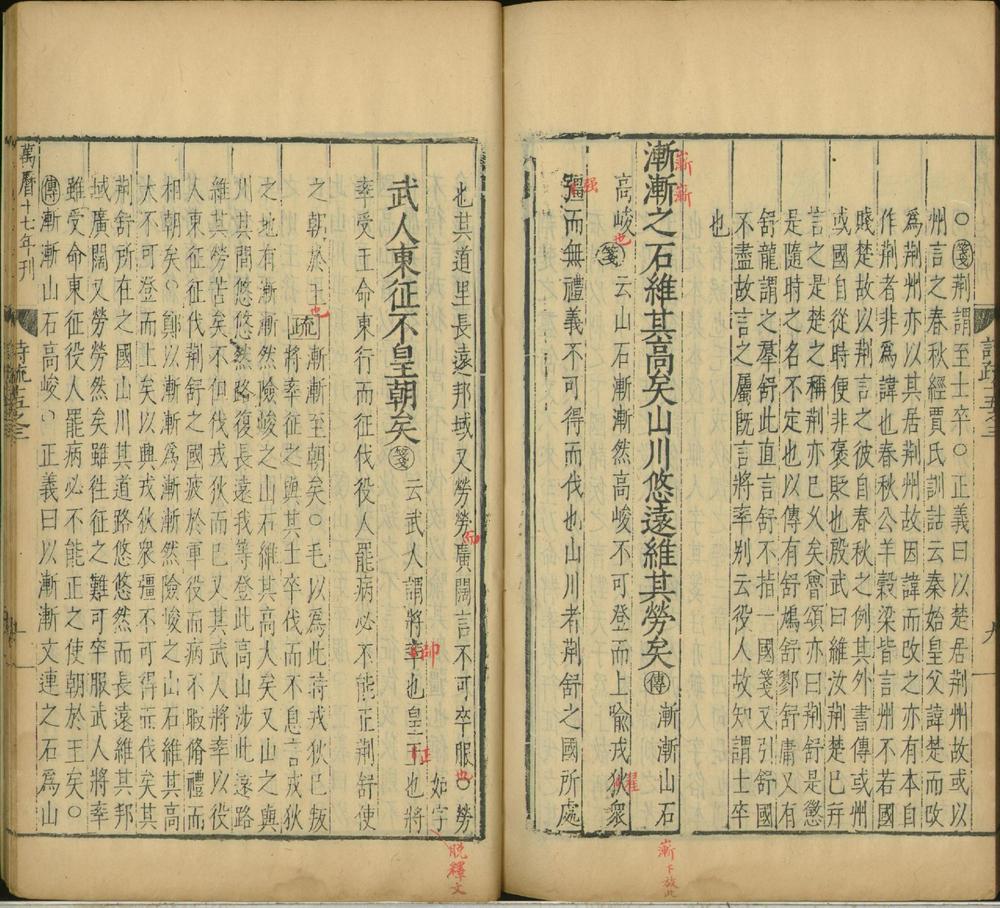 ○箋荊謂至士卒○正義曰以楚居荊州故或以
州言之春秋經賈氏訓詁云秦始皇父諱楚而改
為荊州亦以其居荊州故因諱而改之亦有本自
作荊者非為諱也春秋公羊穀梁皆言州不若國
賤楚故以荊言之彼自春秋之例其外書傳或州
或國自從時便非褒貶也殷武曰維汝荊楚已并
言之是楚之稱荊亦已久矣魯頌亦曰荊舒是懲
是隨時之名不定也以傳有舒鳩舒鄝舒庸又有
舒龍謂之羣舒此直言舒不指一國箋又引舒國
不盡故言之屬既言將率别云役人故知謂士卒
也
漸漸之石維其高矣山川悠遠維其勞矣傳漸漸山石
高峻箋云山石漸漸然高峻不可登而上喻戎狄衆
彊而無禮義不可得而伐也山川者荊舒之國所處
也其道里長遠邦域又勞勞廣闊言不可卒服○勞
如字
武人東征不皇朝矣箋云武人謂將率也皇王也將
率受王命東行而征伐役人罷病必不能正荊舒使
之朝於王疏漸漸至朝矣○毛以為此時戎狄已叛
將率在二之與其士卒伐而不息言戎狄
之地有漸漸然險峻之山石維其高大矣又山之與
川其間悠悠然路復長遠我等登此高山涉此遠路
維其勞苦矣不但伐戎狄而已又其武人將率以役
人東征征伐荊舒之國疲於軍役而病不暇脩禮而
相朝矣○鄭以漸漸為漸漸然險峻之山石維其高
大不可登而上矣以興戎狄衆彊不可得而伐矣其
荊舒所在之國山川其道路悠悠然而長遠維其邦
域廣闊又勞勞然矣雖往征之難可卒服武人將率
雖受命東征役人罷病必不能正之使朝於王矣○
傳漸漸山石高峻○正義曰以漸漸文連之石為山
萬曆十七年刊
詩疏十五之三
九
嶄嶄
也
強
漸下放此
帥
正
也
脫釋文